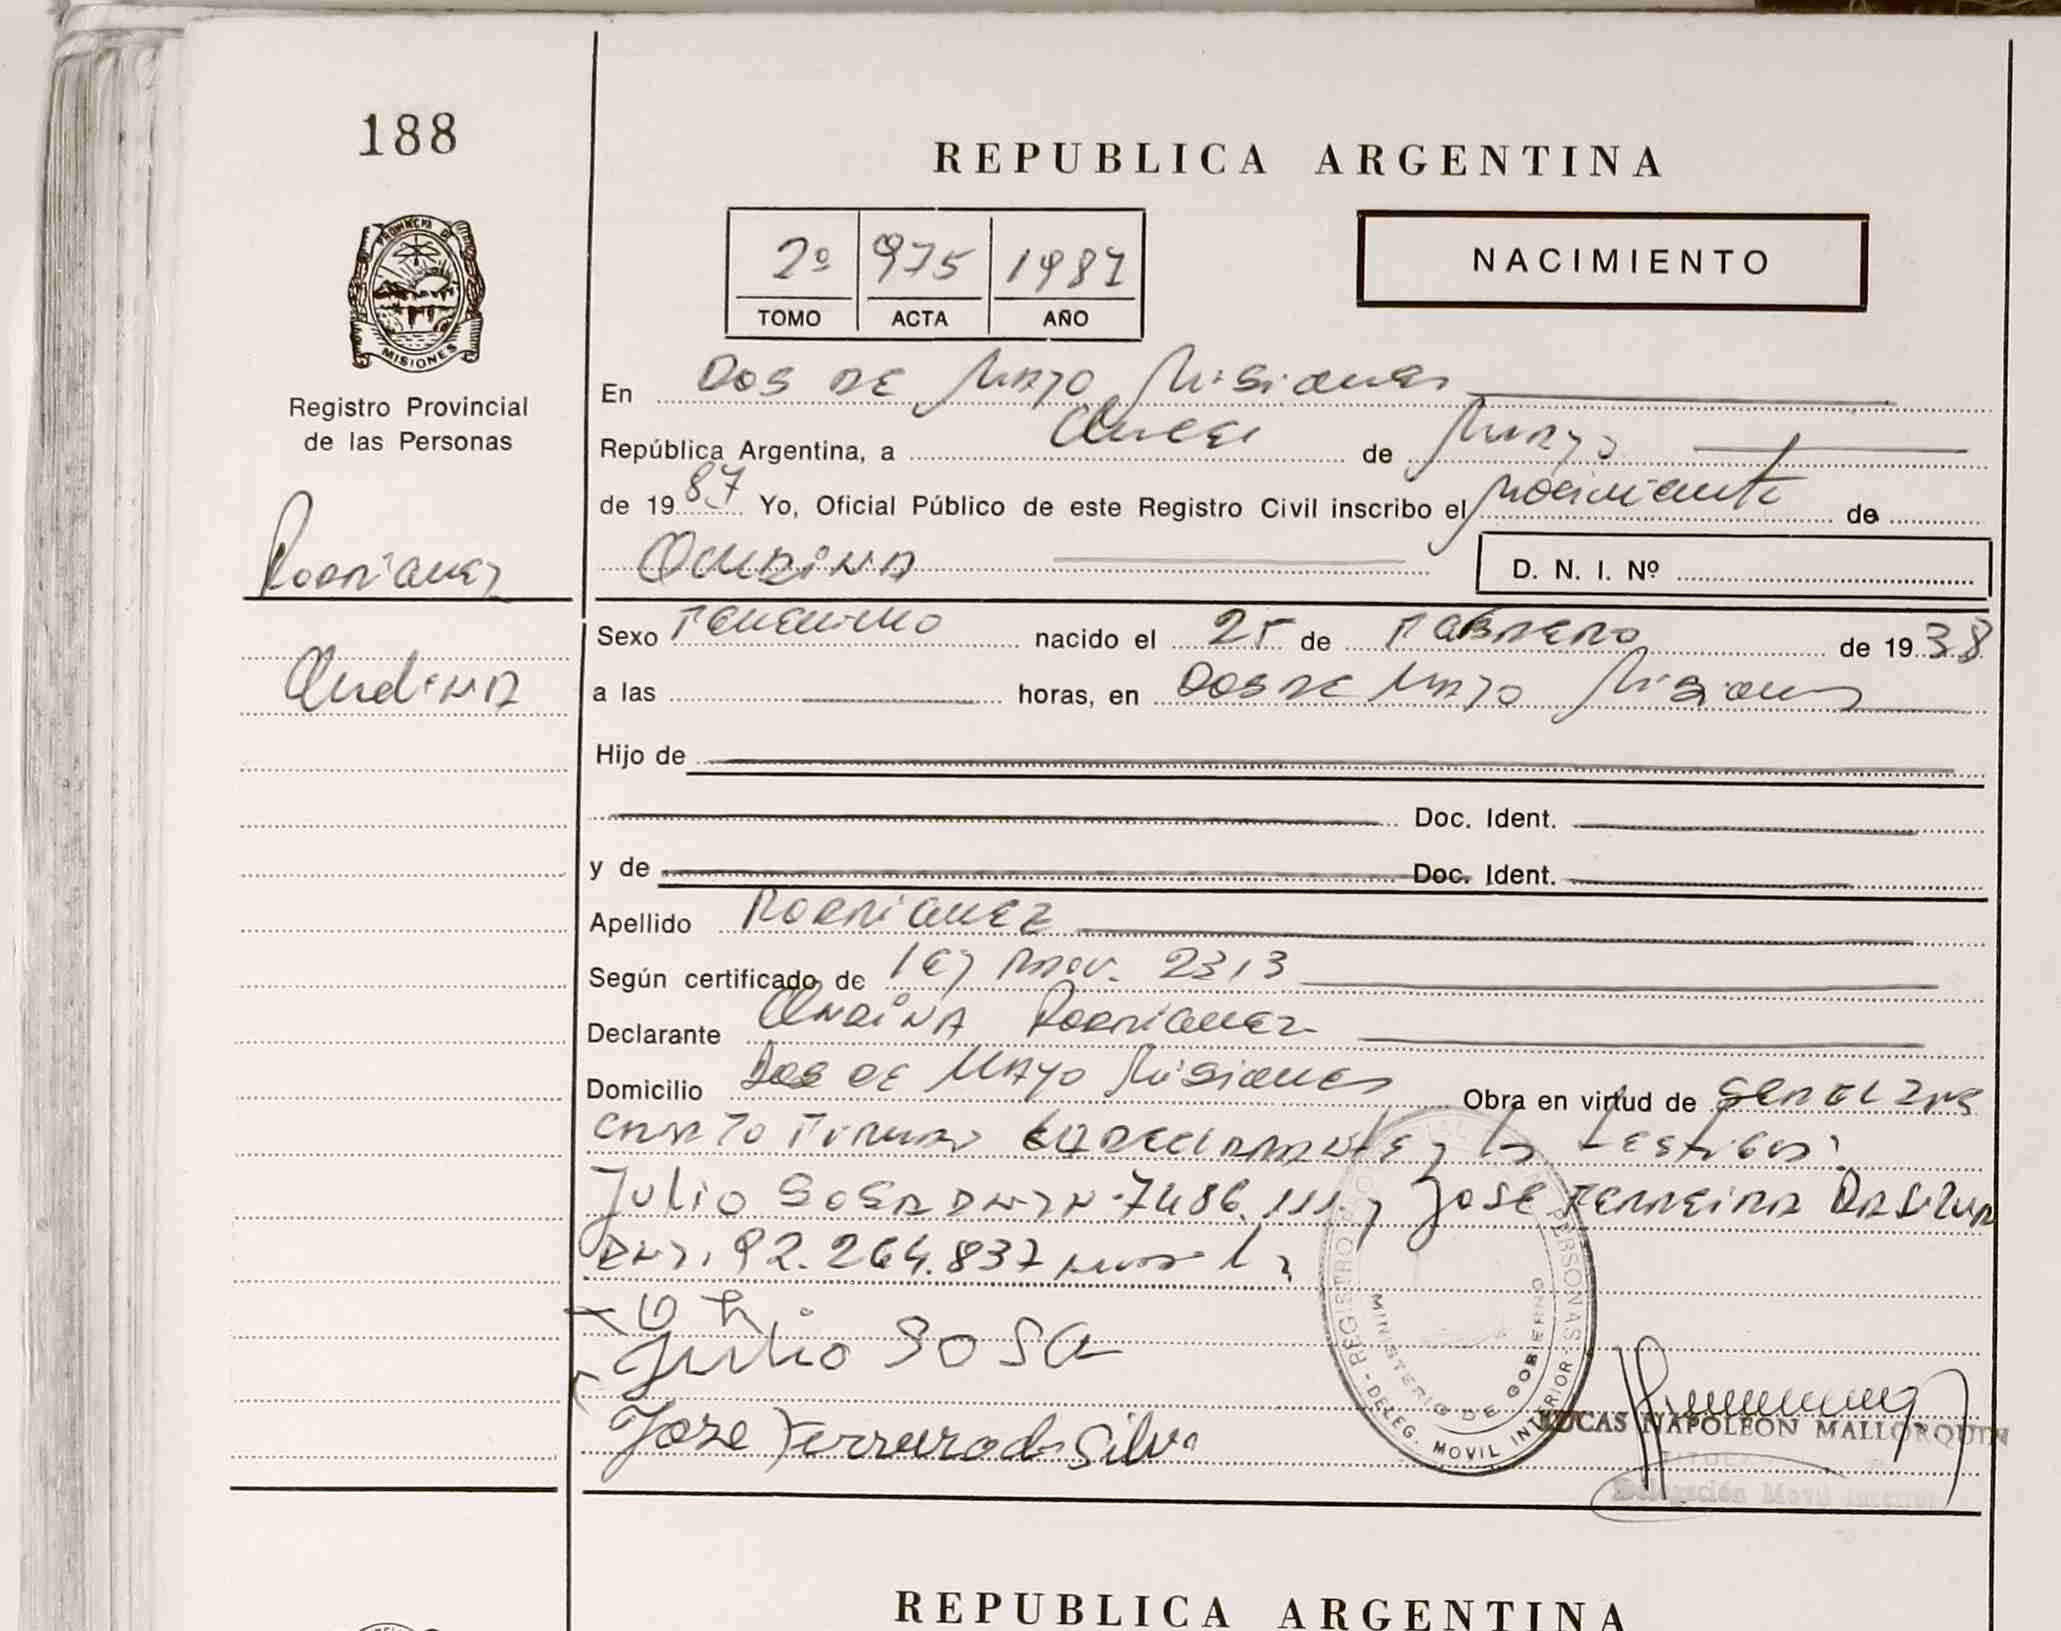 188
REPUBLICA ARGENTINA
2º 975 1987
TOMO ACTA AÑO
NACIMIENTO
PROVINCIA DE
MISIONES
Registro Provincial
de las Personas
En Dos de Mayo Misiones
República Argentina, a once de Mayo
de 1987 Yo, Oficial Público de este Registro Civil inscribo el nacimiento de
D. N. I. Nº
Rodriguez
Sexo Femenino nacido el 25 de Febrero de 1938
a las horas, en Dos de Mayo Misiones
Hijo de
Doc. Ident.
y de Doc. Ident.
Apellido Rodriguez
Según certificado de ley Prov. 2313
Declarante Rodriguez
Domicilio Dos de Mayo Misiones Obra en virtud de
la declarante y los testigos:
Julio Sosa 7486.111 y Jose Ferreira Da Silva
DNI. 92.264.837
Julio Sosa
Jose Ferrera da Silva
REGISTRO PERSONAS
MINISTERIO DE GOBIERNO
DELEG. MOVIL INTERIOR
LUCAS NAPOLEON MALLORQUIN
Delegación Movil Interior
REPUBLICA ARGENTINA